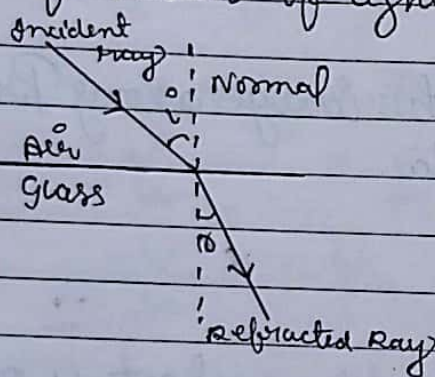 Incident
ray
Normal
i
Air
Glass
r
Refracted Ray